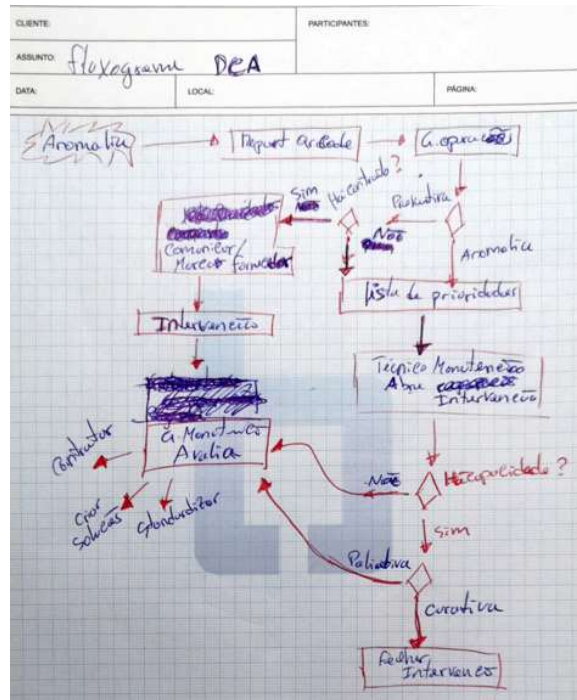 CLIENTE:
PARTICIPANTES:
ASSUNTO: fluxograma DCA
DATA:
LOCAL:
PÁGINA:
Report
Há contrato?
Sim
Não
Comunicar/
Marcar fornecedor
Lista de prioridades
Intervenção
Técnico Manutenção
Abre
Intervenção
G. Manutenção
Avalia
Construtor
Criar
Soluções
Standardizar
Não
Há capacidade?
Sim
Paliativa
Curativa
Fechar
Intervenção